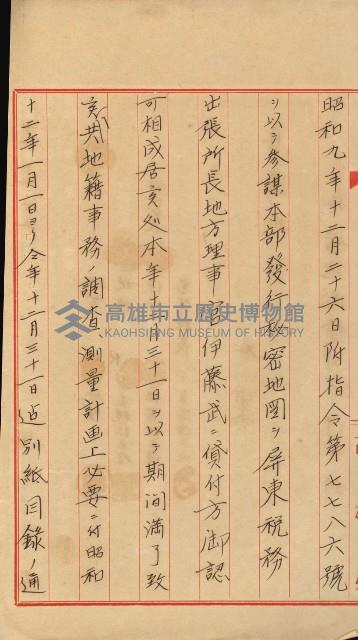 昭和九年十二月二十六日附指令第七七八六號
ヲ以テ参謀本部發行秘密地圖ヲ屏東税務
出張所長地方理事官伊藤武ニ貸付方御認
可相成居候処本年十二月三十一日ヲ以テ期間満了致
候共地籍事務ノ調査測量計画上必要ニ付昭和
十二年一月一日ヨリ仝年十二月三十一日迠別紙目録ノ通
高雄市立歷史博物館
KAOHSIUNG MUSEUM OF HISTORY